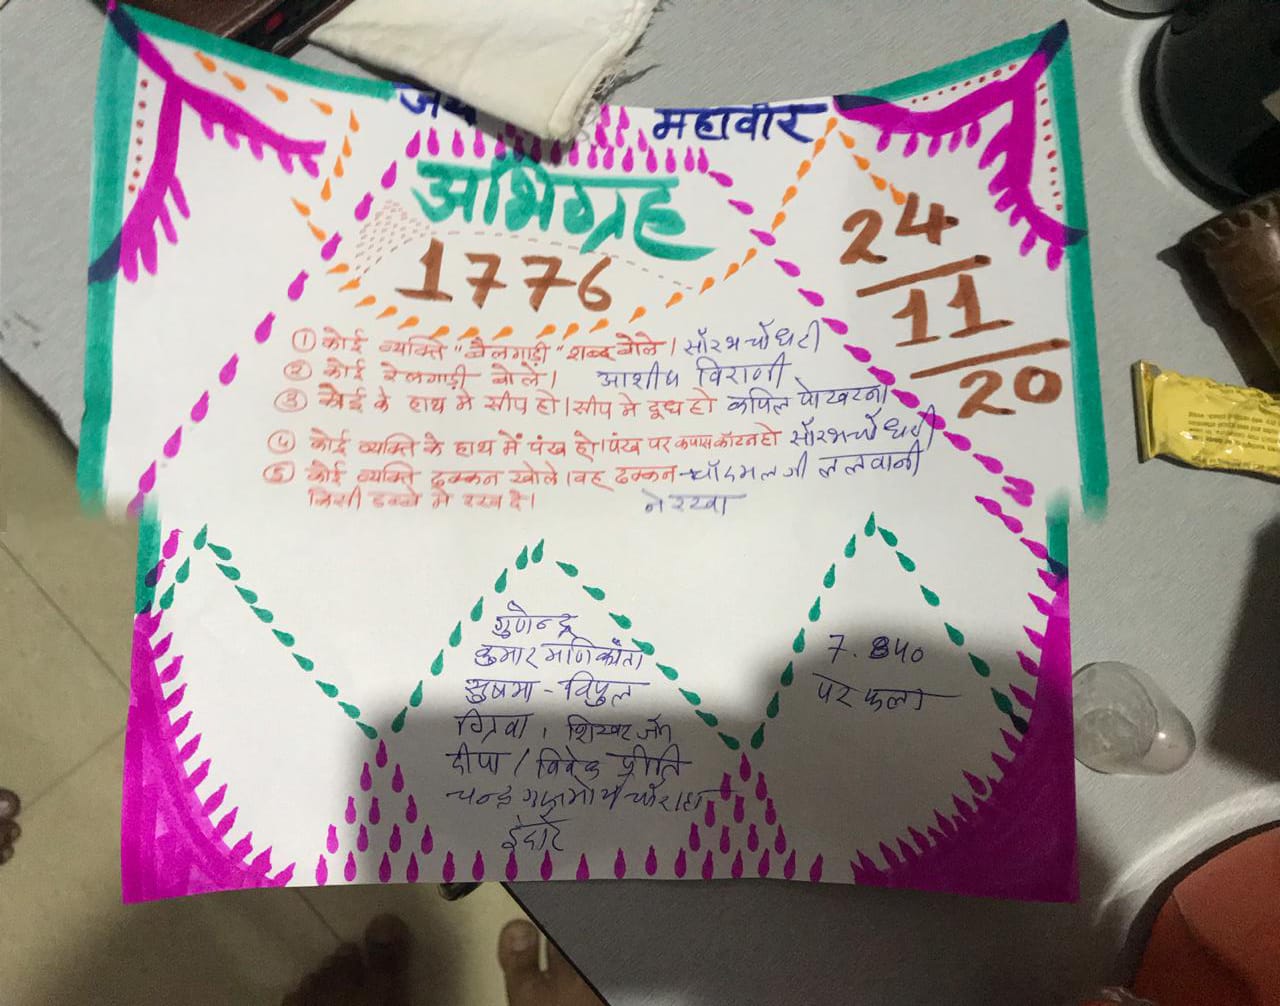 जय महावीर
अभिग्रह
1776
24
11
20
① कोई व्यक्ति "बैलगाड़ी" शब्द बोले। सौरभ चौधरी
② कोई रेलगाड़ी बोले। आशीष विराणी
③ कोई के हाथ मे सीप हो। सीप मे दूध हो कपिल पोखरना
④ कोई व्यक्ति के हाथ में पंख हो। पंख पर कपास कॉटन हो सौरभ चौधरी
⑤ कोई व्यक्ति ढक्कन खोले। वह ढक्कन चाँदमल जी ललवानी
किसी डब्बे मे रख दे। ने रखा
गुणेन्द्र
कुमार मणिकांता
सुषमा - विपुल
शिखर जैन
दीपा / विवेक प्रीति
इंदौर
7.840
पर फला